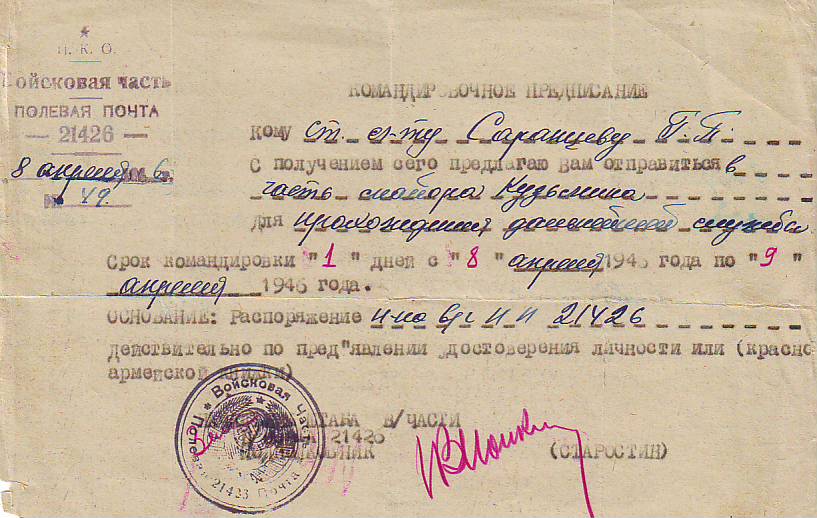 Н. К. О.
Войсковая часть
ПОЛЕВАЯ ПОЧТА
— 21426 —
8 апреля 6
№ 49.
КОМАНДИРОВОЧНОЕ ПРЕДПИСАНИЕ
Кому ст. с-ту Саранцеву П. П.
С получением сего предлагаю Вам отправиться в
часть майора Кузьмина
для прохождения дальнейшей службы
Срок командировки "1" дней с "8" апреля 1946 года по "9"
апреля 1946 года.
ОСНОВАНИЕ: Распоряжение н-ка в/ч п п 21426
Действительно по пред"явлении удостоверения личности или (красно
армейской книжки)
ШТАБА В/ЧАСТИ
21426
ПОДПОЛКОВНИК (СТАРОСТИН)
Войсковая Часть
Полевая Почта 21426